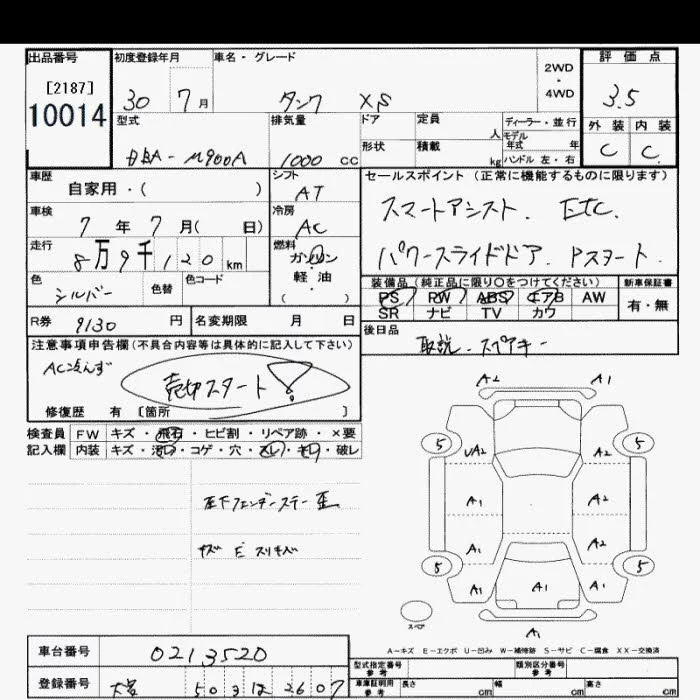 出品番号 初度登録年月 車名・グレード 評価点
[2187]
10014
30 7月 タンク XS 2WD・4WD 3.5
型式 排気量 ドア 定員 人 ディーラー・並行 外装 内装
DBA-M900A 1000 cc 形状 積載 kg モデル年式 年 ハンドル 左・右 C C
車歴 自家用・( ) シフト AT セールスポイント(正常に機能するものに限ります)
車検 7年7月( 日) 冷房 AC スマートアシスト. ETC.
走行 8万9千120km 燃料 ガソリン・軽・油 ( ) パワースライドドア. Pスタート.
色 シルバー 色替 色コード 装備品(純正品に限り○をつけてください) 新車保証書
PS PW ABS エアB AW 有・無
SR ナビ TV カワ
R券 9130円 名変期限 月 日 後日品
取説.スペアキー
注意事項申告欄(不具合内容等は具体的に記入して下さい)
AC点んず 売切スタート!
修復歴 有 〔箇所 〕
検査員 FW キズ・飛石・ヒビ割・リペア跡・×要
記入欄 内装 キズ・汚れ・コゲ・穴・スレ・キレ・破レ
左下フェンダーステー歪
キズ E スリキズ
A2 A1
5 5
UA2 A2
A1 A2
A1 A2
5 5
A1 A1 A1
スペア
A1
A-キズ E-エクボ U-凹み W-補修跡 S-サビ C-腐食 XX-交換済
車台番号 0213520 型式指定番号 参考 類別区分番号 参考
登録番号 503 12 2607 車庫証明用 参考 長さ cm 幅 cm 高さ cm